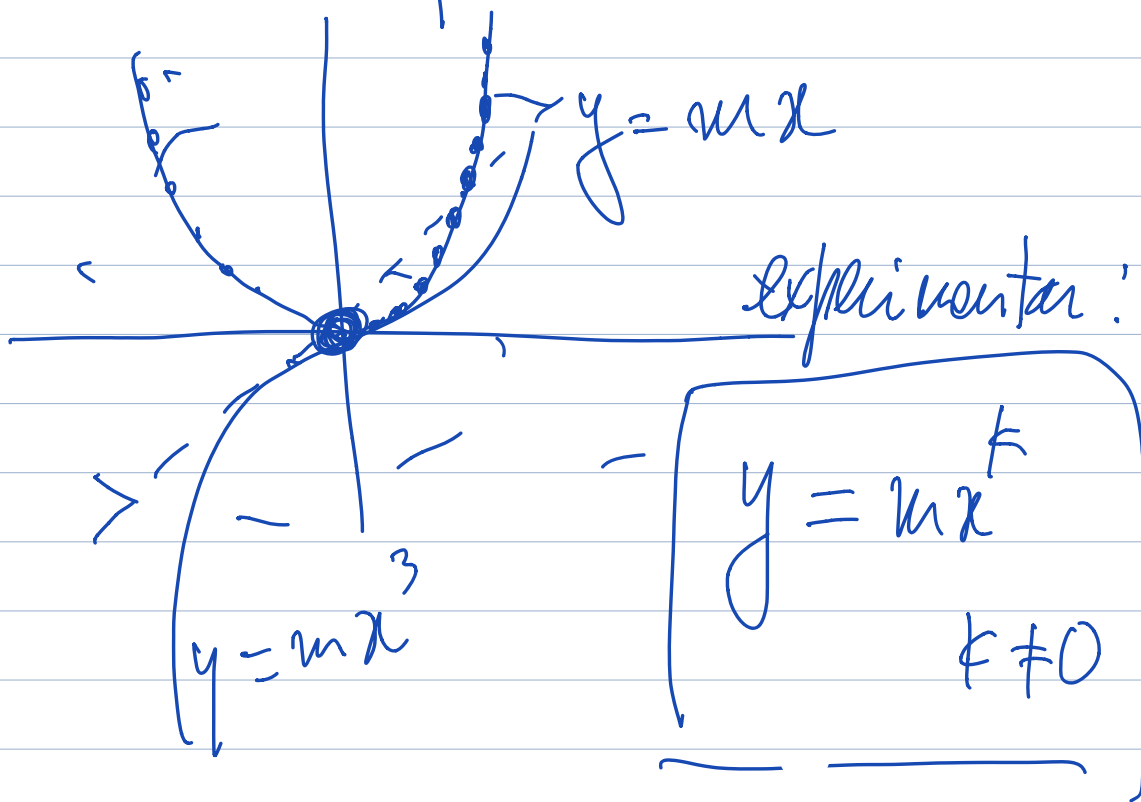 y = mx
experimentar:
y = mx^k
k ≠ 0
y = mx^3